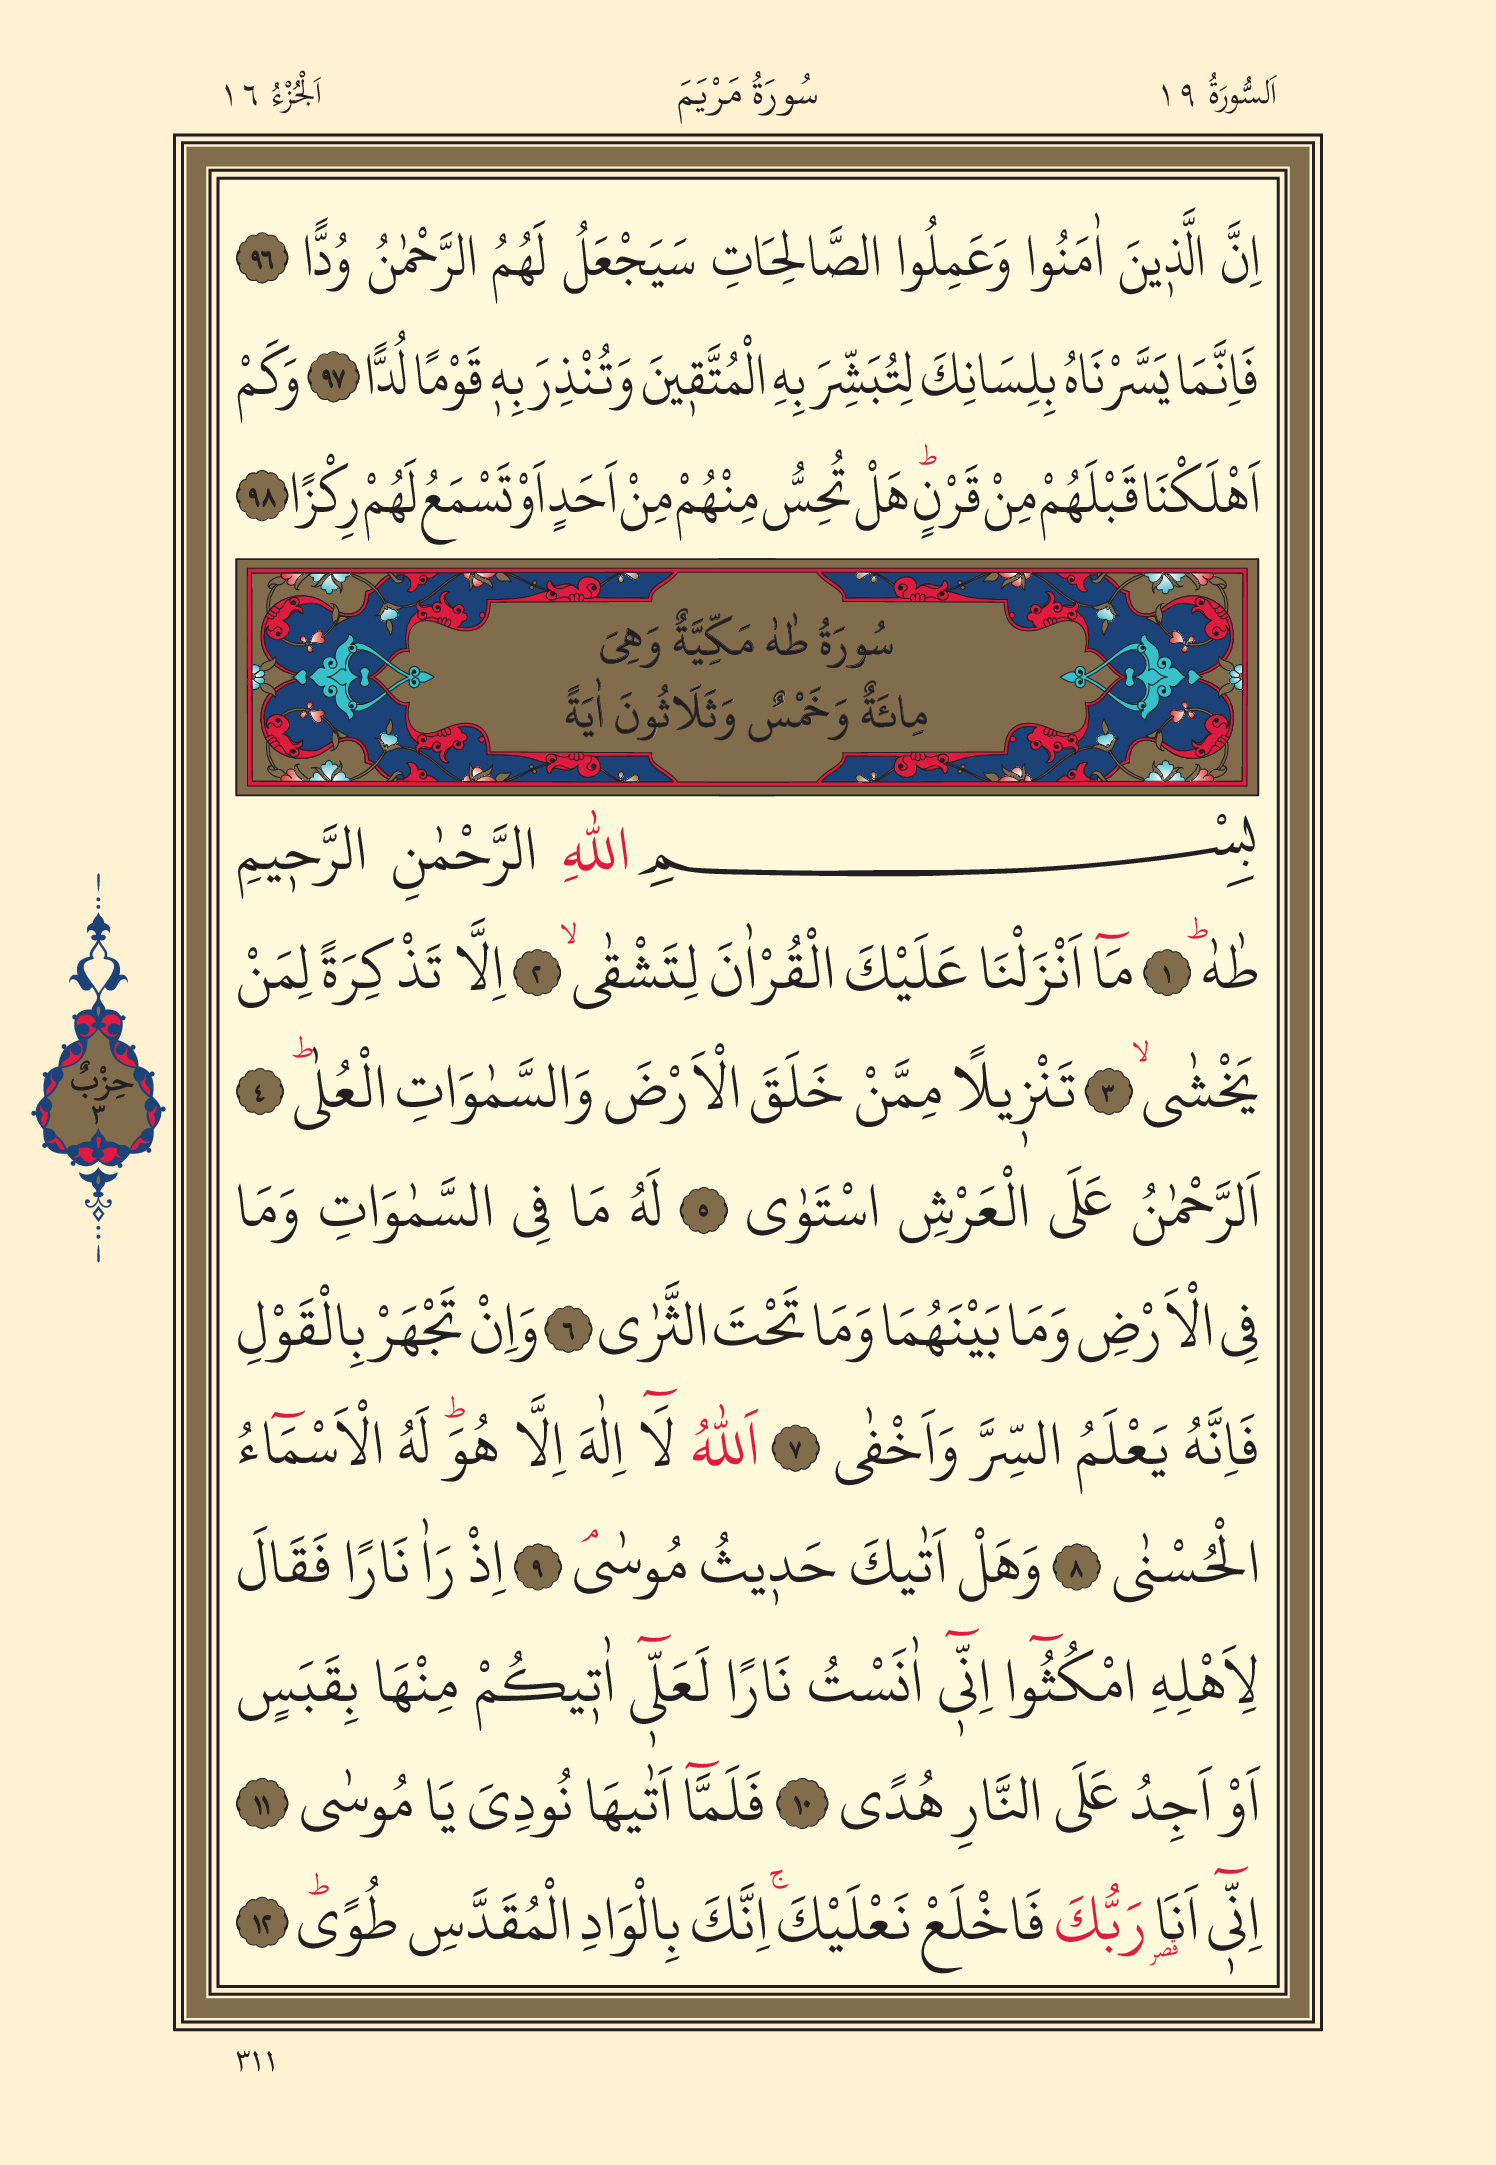 اَلسُّورَةُ ١٩ سُورَةُ مَرْيَمَ اَلْجُزْءُ ١٦
اِنَّ الَّذ۪ينَ اٰمَنُوا وَعَمِلُوا الصَّالِحَاتِ سَيَجْعَلُ لَهُمُ الرَّحْمٰنُ وُدًّا ٩٦
فَاِنَّمَا يَسَّرْنَاهُ بِلِسَانِكَ لِتُبَشِّرَ بِهِ الْمُتَّق۪ينَ وَتُنْذِرَ بِه۪ قَوْمًا لُدًّا ٩٧ وَكَمْ
اَهْلَكْنَا قَبْلَهُمْ مِنْ قَرْنٍۜ هَلْ تُحِسُّ مِنْهُمْ مِنْ اَحَدٍ اَوْ تَسْمَعُ لَهُمْ رِكْزًا ٩٨
سُورَةُ طٰهٰ مَكِّيَّةٌ وَهِىَ
مِائَةٌ وَخَمْسٌ وَثَلَاثُونَ اٰيَةً
بِسْمِ اللّٰهِ الرَّحْمٰنِ الرَّح۪يمِ
طٰهٰۜ ١ مَٓا اَنْزَلْنَا عَلَيْكَ الْقُرْاٰنَ لِتَشْقٰىۙ ٢ اِلَّا تَذْكِرَةً لِمَنْ
يَخْشٰىۙ ٣ تَنْز۪يلًا مِمَّنْ خَلَقَ الْاَرْضَ وَالسَّمٰوَاتِ الْعُلٰىۜ ٤
اَلرَّحْمٰنُ عَلَى الْعَرْشِ اسْتَوٰى ٥ لَهُ مَا فِى السَّمٰوَاتِ وَمَا
فِى الْاَرْضِ وَمَا بَيْنَهُمَا وَمَا تَحْتَ الثَّرٰى ٦ وَاِنْ تَجْهَرْ بِالْقَوْلِ
فَاِنَّهُ يَعْلَمُ السِّرَّ وَاَخْفٰى ٧ اَللّٰهُ لَٓا اِلٰهَ اِلَّا هُوَۜ لَهُ الْاَسْمَٓاءُ
الْحُسْنٰى ٨ وَهَلْ اَتٰيكَ حَد۪يثُ مُوسٰىۢ ٩ اِذْ رَاٰ نَارًا فَقَالَ
لِاَهْلِهِ امْكُثُٓوا اِنّ۪ٓى اٰنَسْتُ نَارًا لَعَلّ۪ٓى اٰت۪يكُمْ مِنْهَا بِقَبَسٍ
اَوْ اَجِدُ عَلَى النَّارِ هُدًى ١٠ فَلَمَّٓا اَتٰيهَا نُودِىَ يَا مُوسٰى ١١
اِنّ۪ٓى اَنَا قصر رَبُّكَ فَاخْلَعْ نَعْلَيْكَۚ اِنَّكَ بِالْوَادِ الْمُقَدَّسِ طُوًىۜ ١٢
حِزْبٌ
٣
٣١١